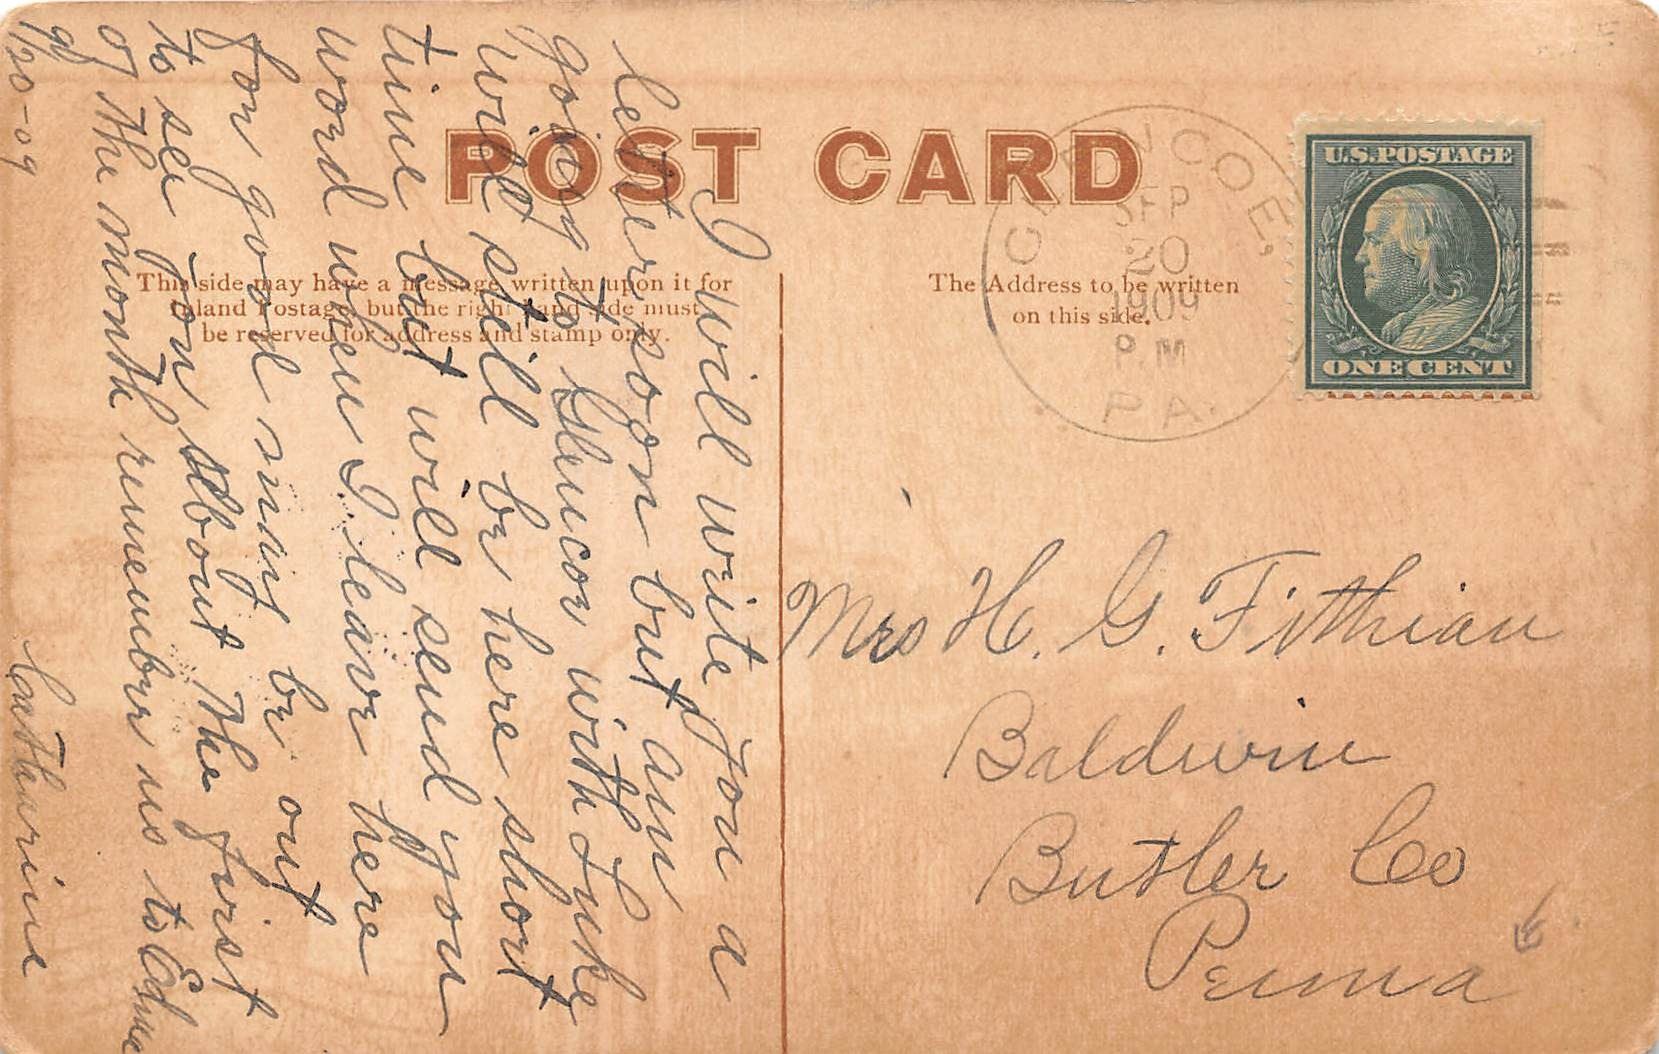 POST CARD
This side may have a message written upon it for
Inland Postage, but the right hand side must
be reserved for address and stamp only.
The Address to be written
on this side.
GLENCOE,
SEP
20
1909
P.M
PA.
U.S. POSTAGE
ONE CENT
I will write you a
letter soon but am
going to Glencor with Luke
will still be here short
time but will send you
word when I leave here
for good may be out
to see you about the first
of the month remember us to
20-09
Catharine
Mrs H. G. Fithian
Baldwin
Butler Co
Penna